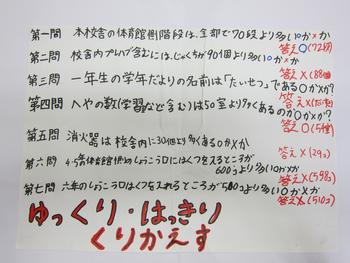 第一問 本校舎の体育館側階段は、全部で70段より多い○か×か
答え○(72段)
第二問 校舎内プレハブ含むには、じゃぐちが90個より多い○か×か
答え×(88個)
第三問 一年生の学年だよりの名前は「たいせつ」である○か×か?
答え×
第四問 へやの数(学習など含む)は50室より多くあるのか○か×か?
答え○
第五問 消火器は校舎内に30個より多くある○か×か
答え×(29コ)
第六問 4・5年体育館側のしょうこう口にはくつを入るところが
600コより多い○か×か
答え×(598コ)
第七問 六年のしょうこう口はくつを入れるところが
より多い○か×か
答え×(510コ)
ゆっくり・はっきり
くりかえす